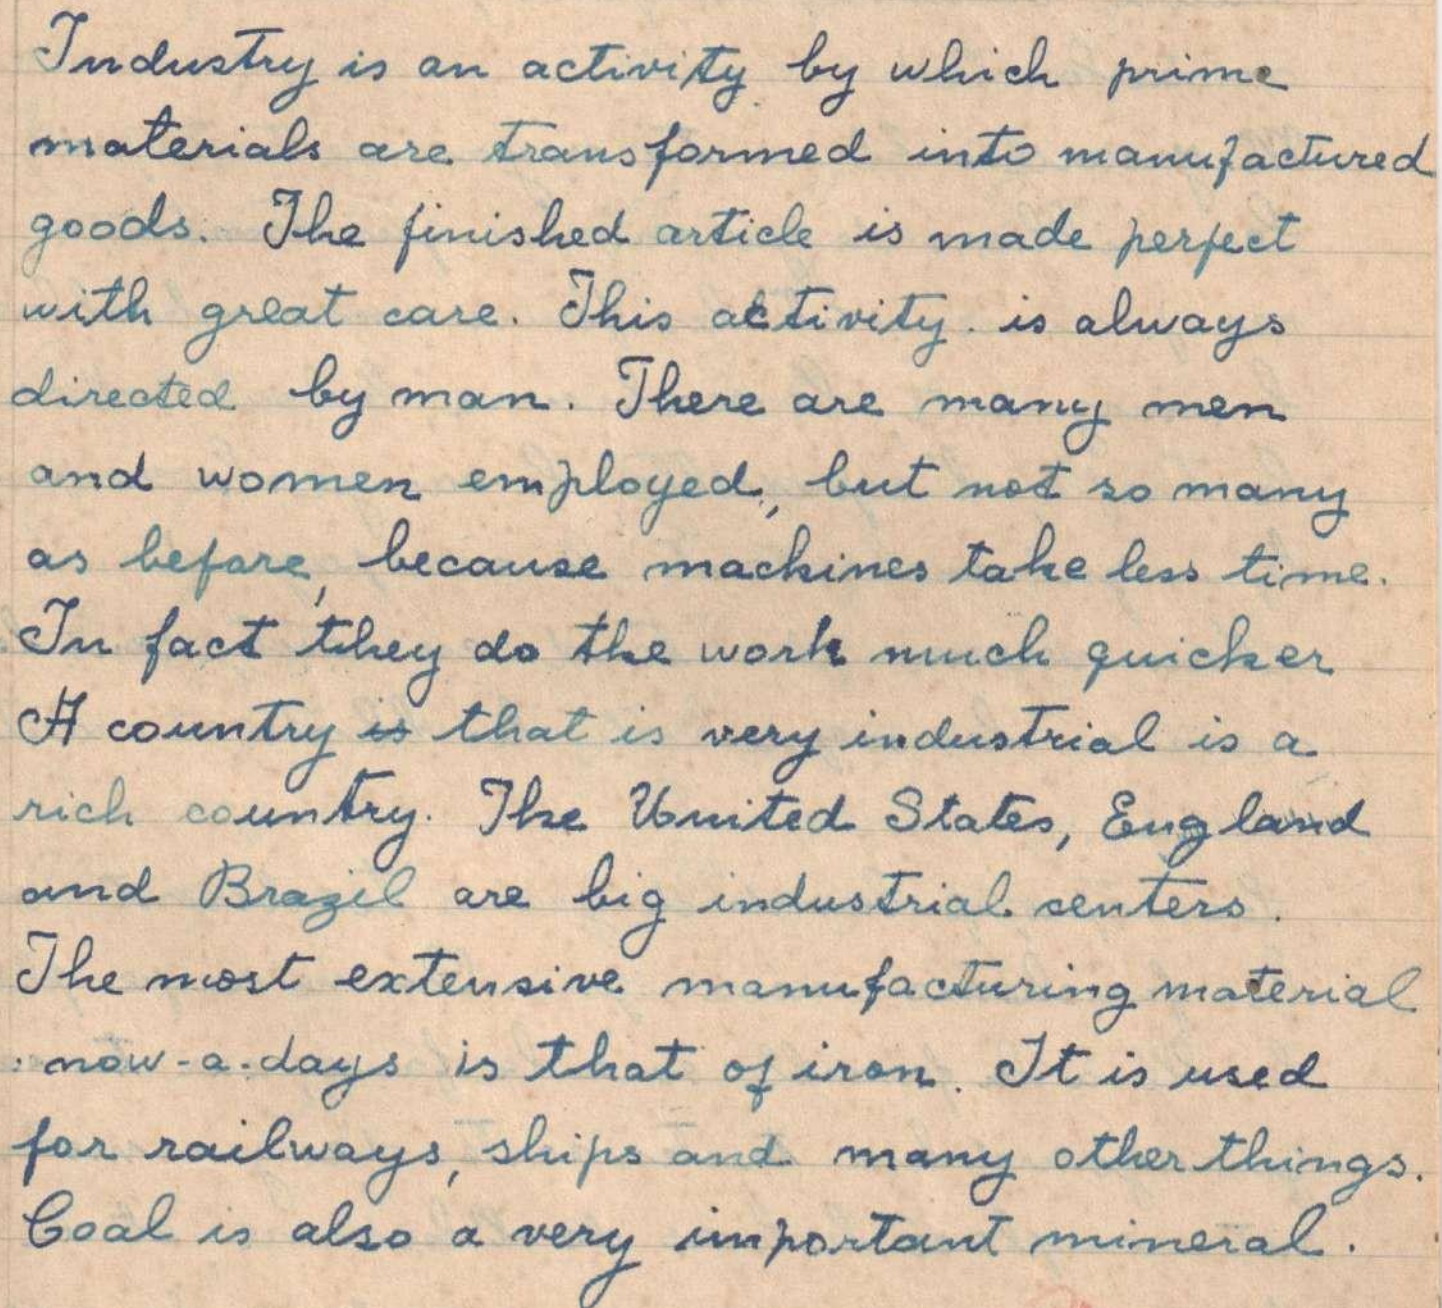 Industry is an activity by which prime
materials are transformed into manufactured
goods. The finished article is made perfect
with great care. This activity. is always
directed by man. There are many men
and women employed, but not so many
as before, because machines take less time.
In fact they do the work much quicker
A country is that is very industrial is a
rich country. The United States, England
and Brazil are big industrial centers.
The most extensive manufacturing material
now-a-days is that of iron. It is used
for railways, ships and many other things.
Coal is also a very important mineral.